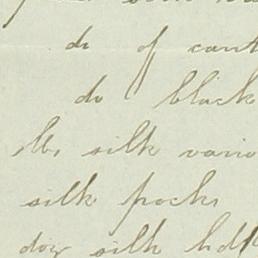 do of cant
do black
lbs silk vario
silk frocks
doz silk hdk